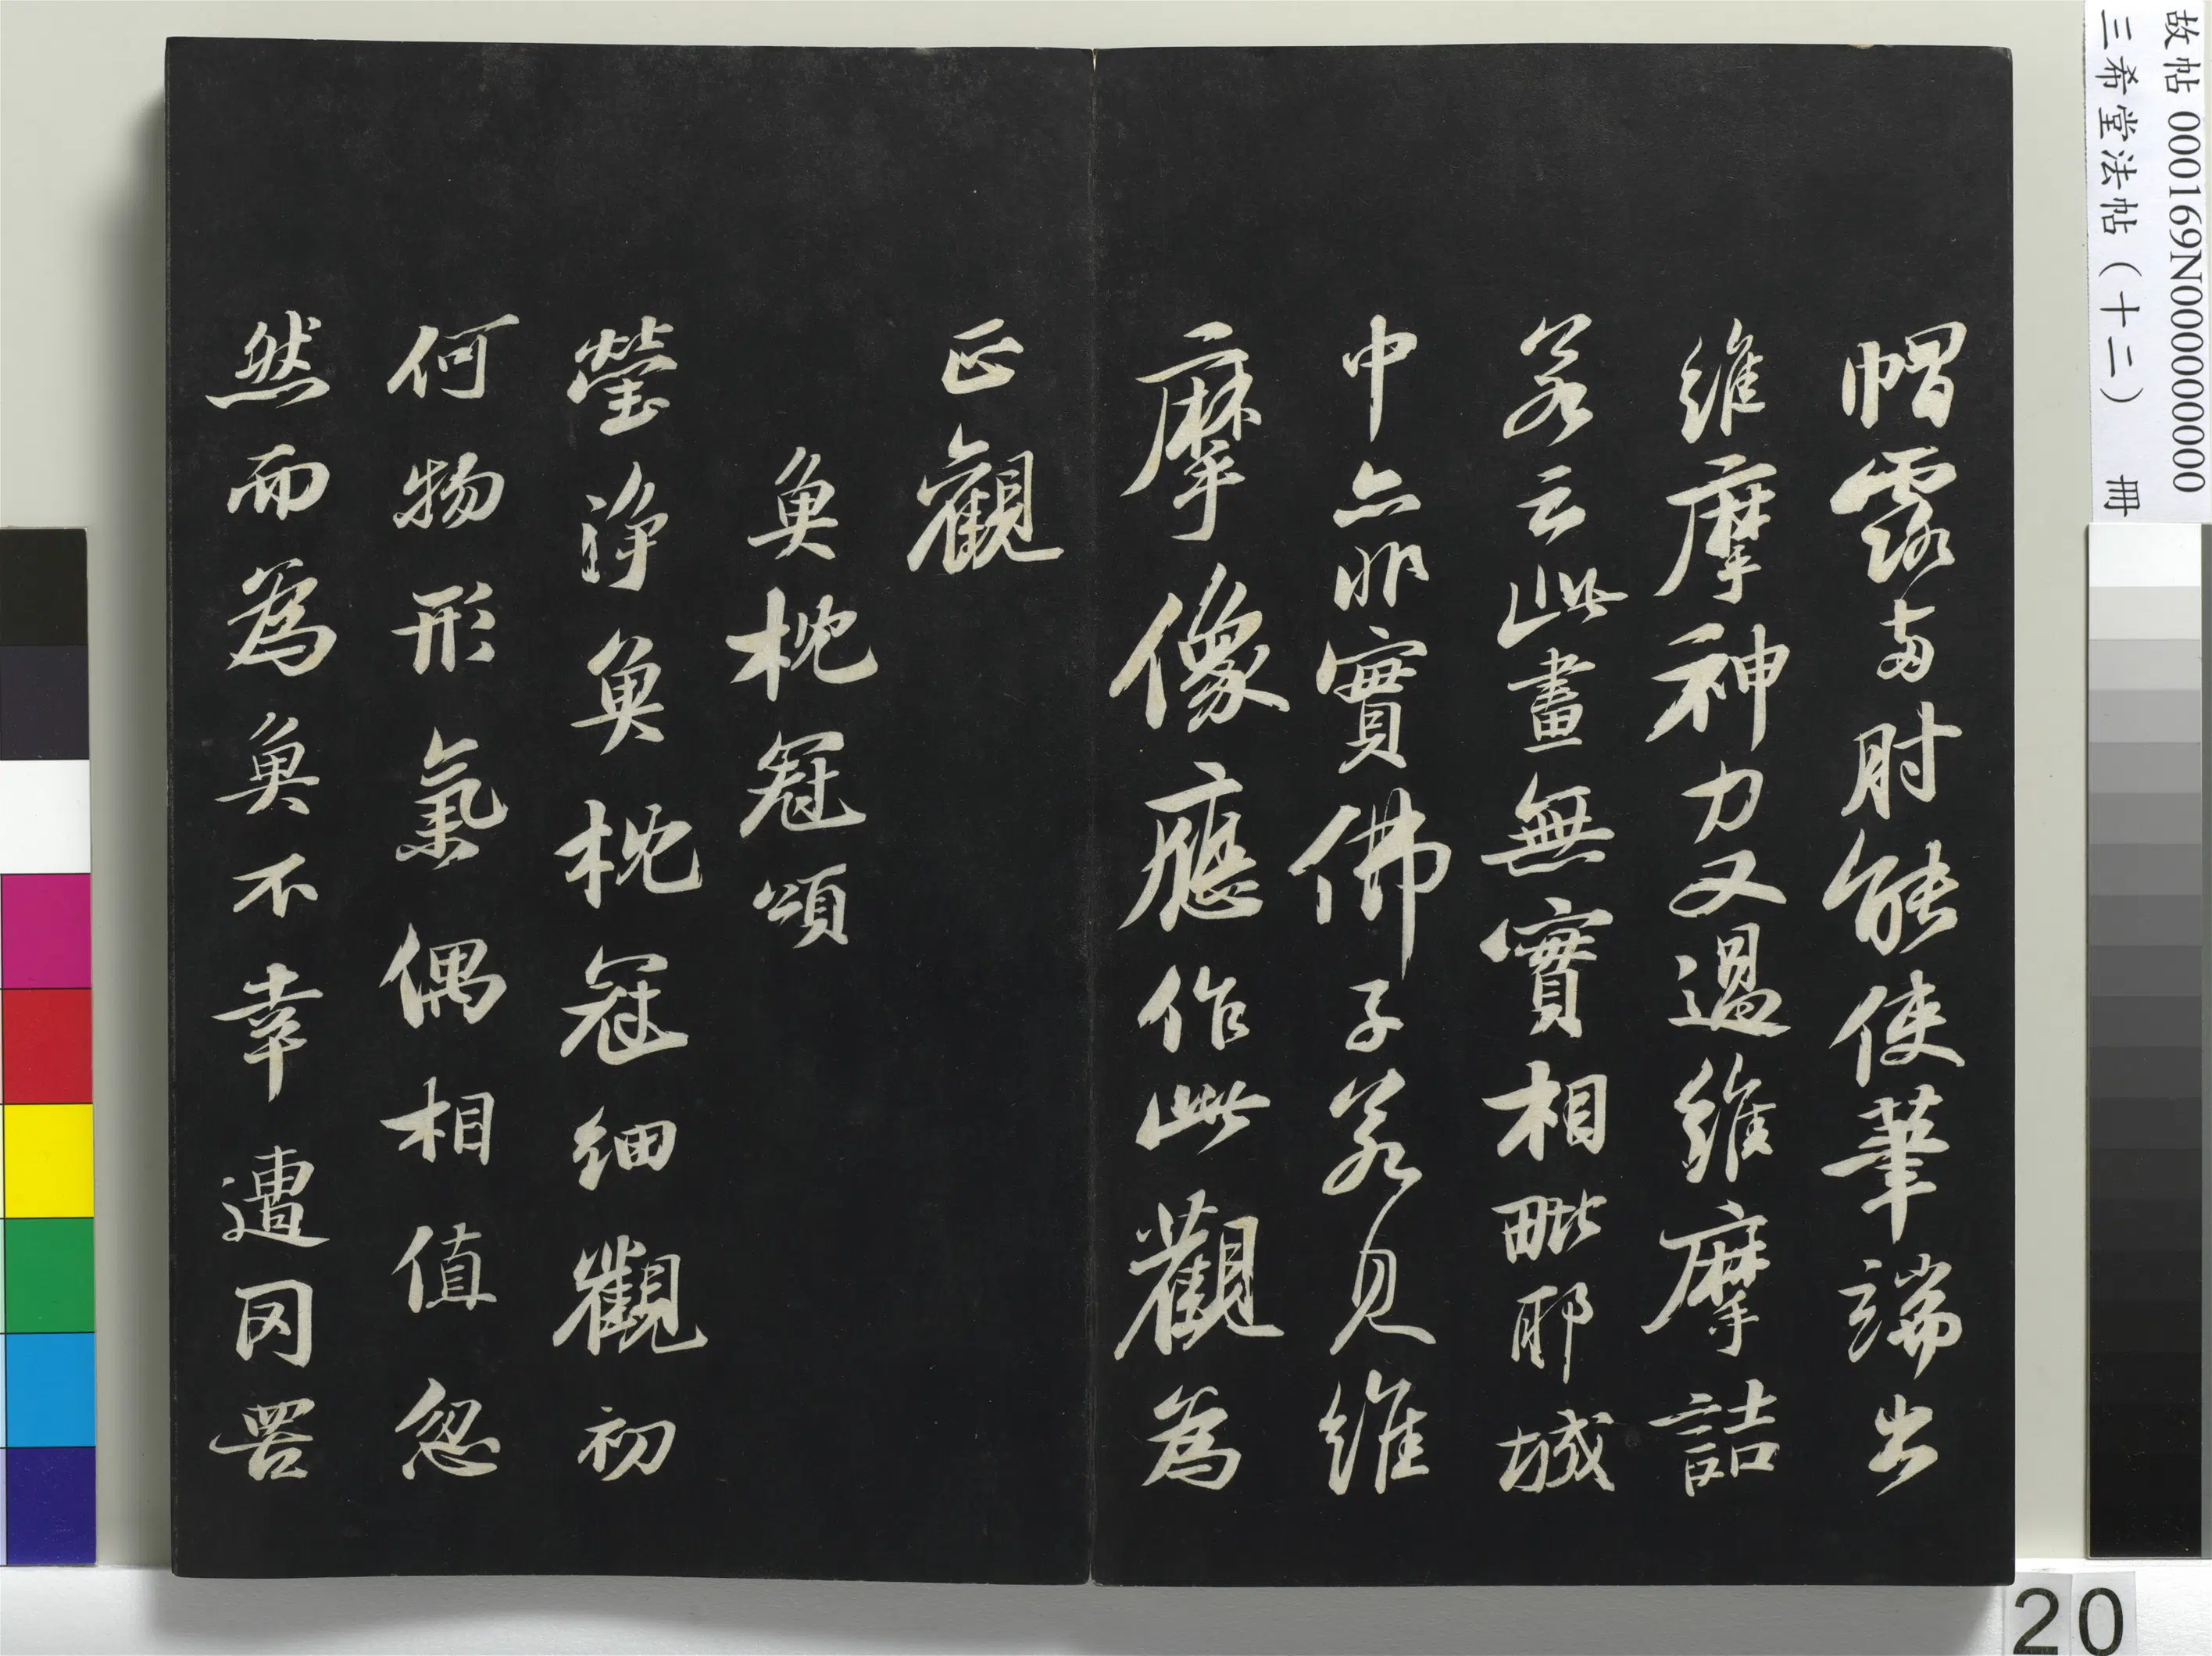 帽露兩肘能使筆端出
維摩神力又過維摩詰
若云此畫無實相毗耶城
中亦非實佛子若見維
摩像應作此觀為
正觀
魚枕冠頌
瑩淨魚枕冠細觀初
何物形氣偶相值忽
然而為魚不幸遭罔罟
故帖 000169N000000000
三希堂法帖（十二） 冊
20